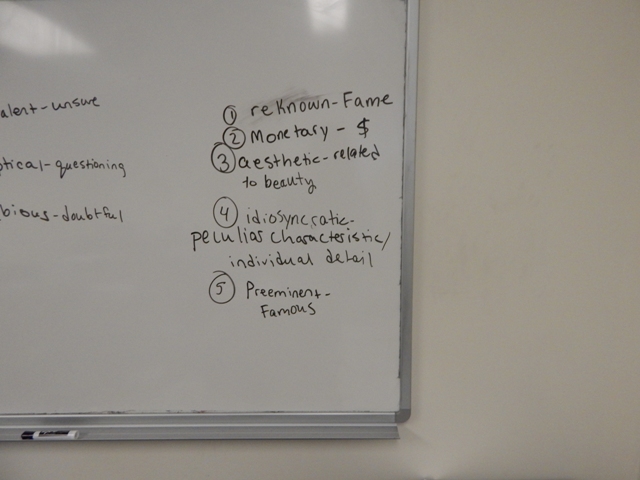 alent-unswe
tical-questioning
bious-doubtful
① reKnown-Fame
② Monetary - $
③ aesthetic-related
to beauty
④ idiosyncratic-
peculiar characteristic/
individual detail
⑤ Preeminent-
Famous